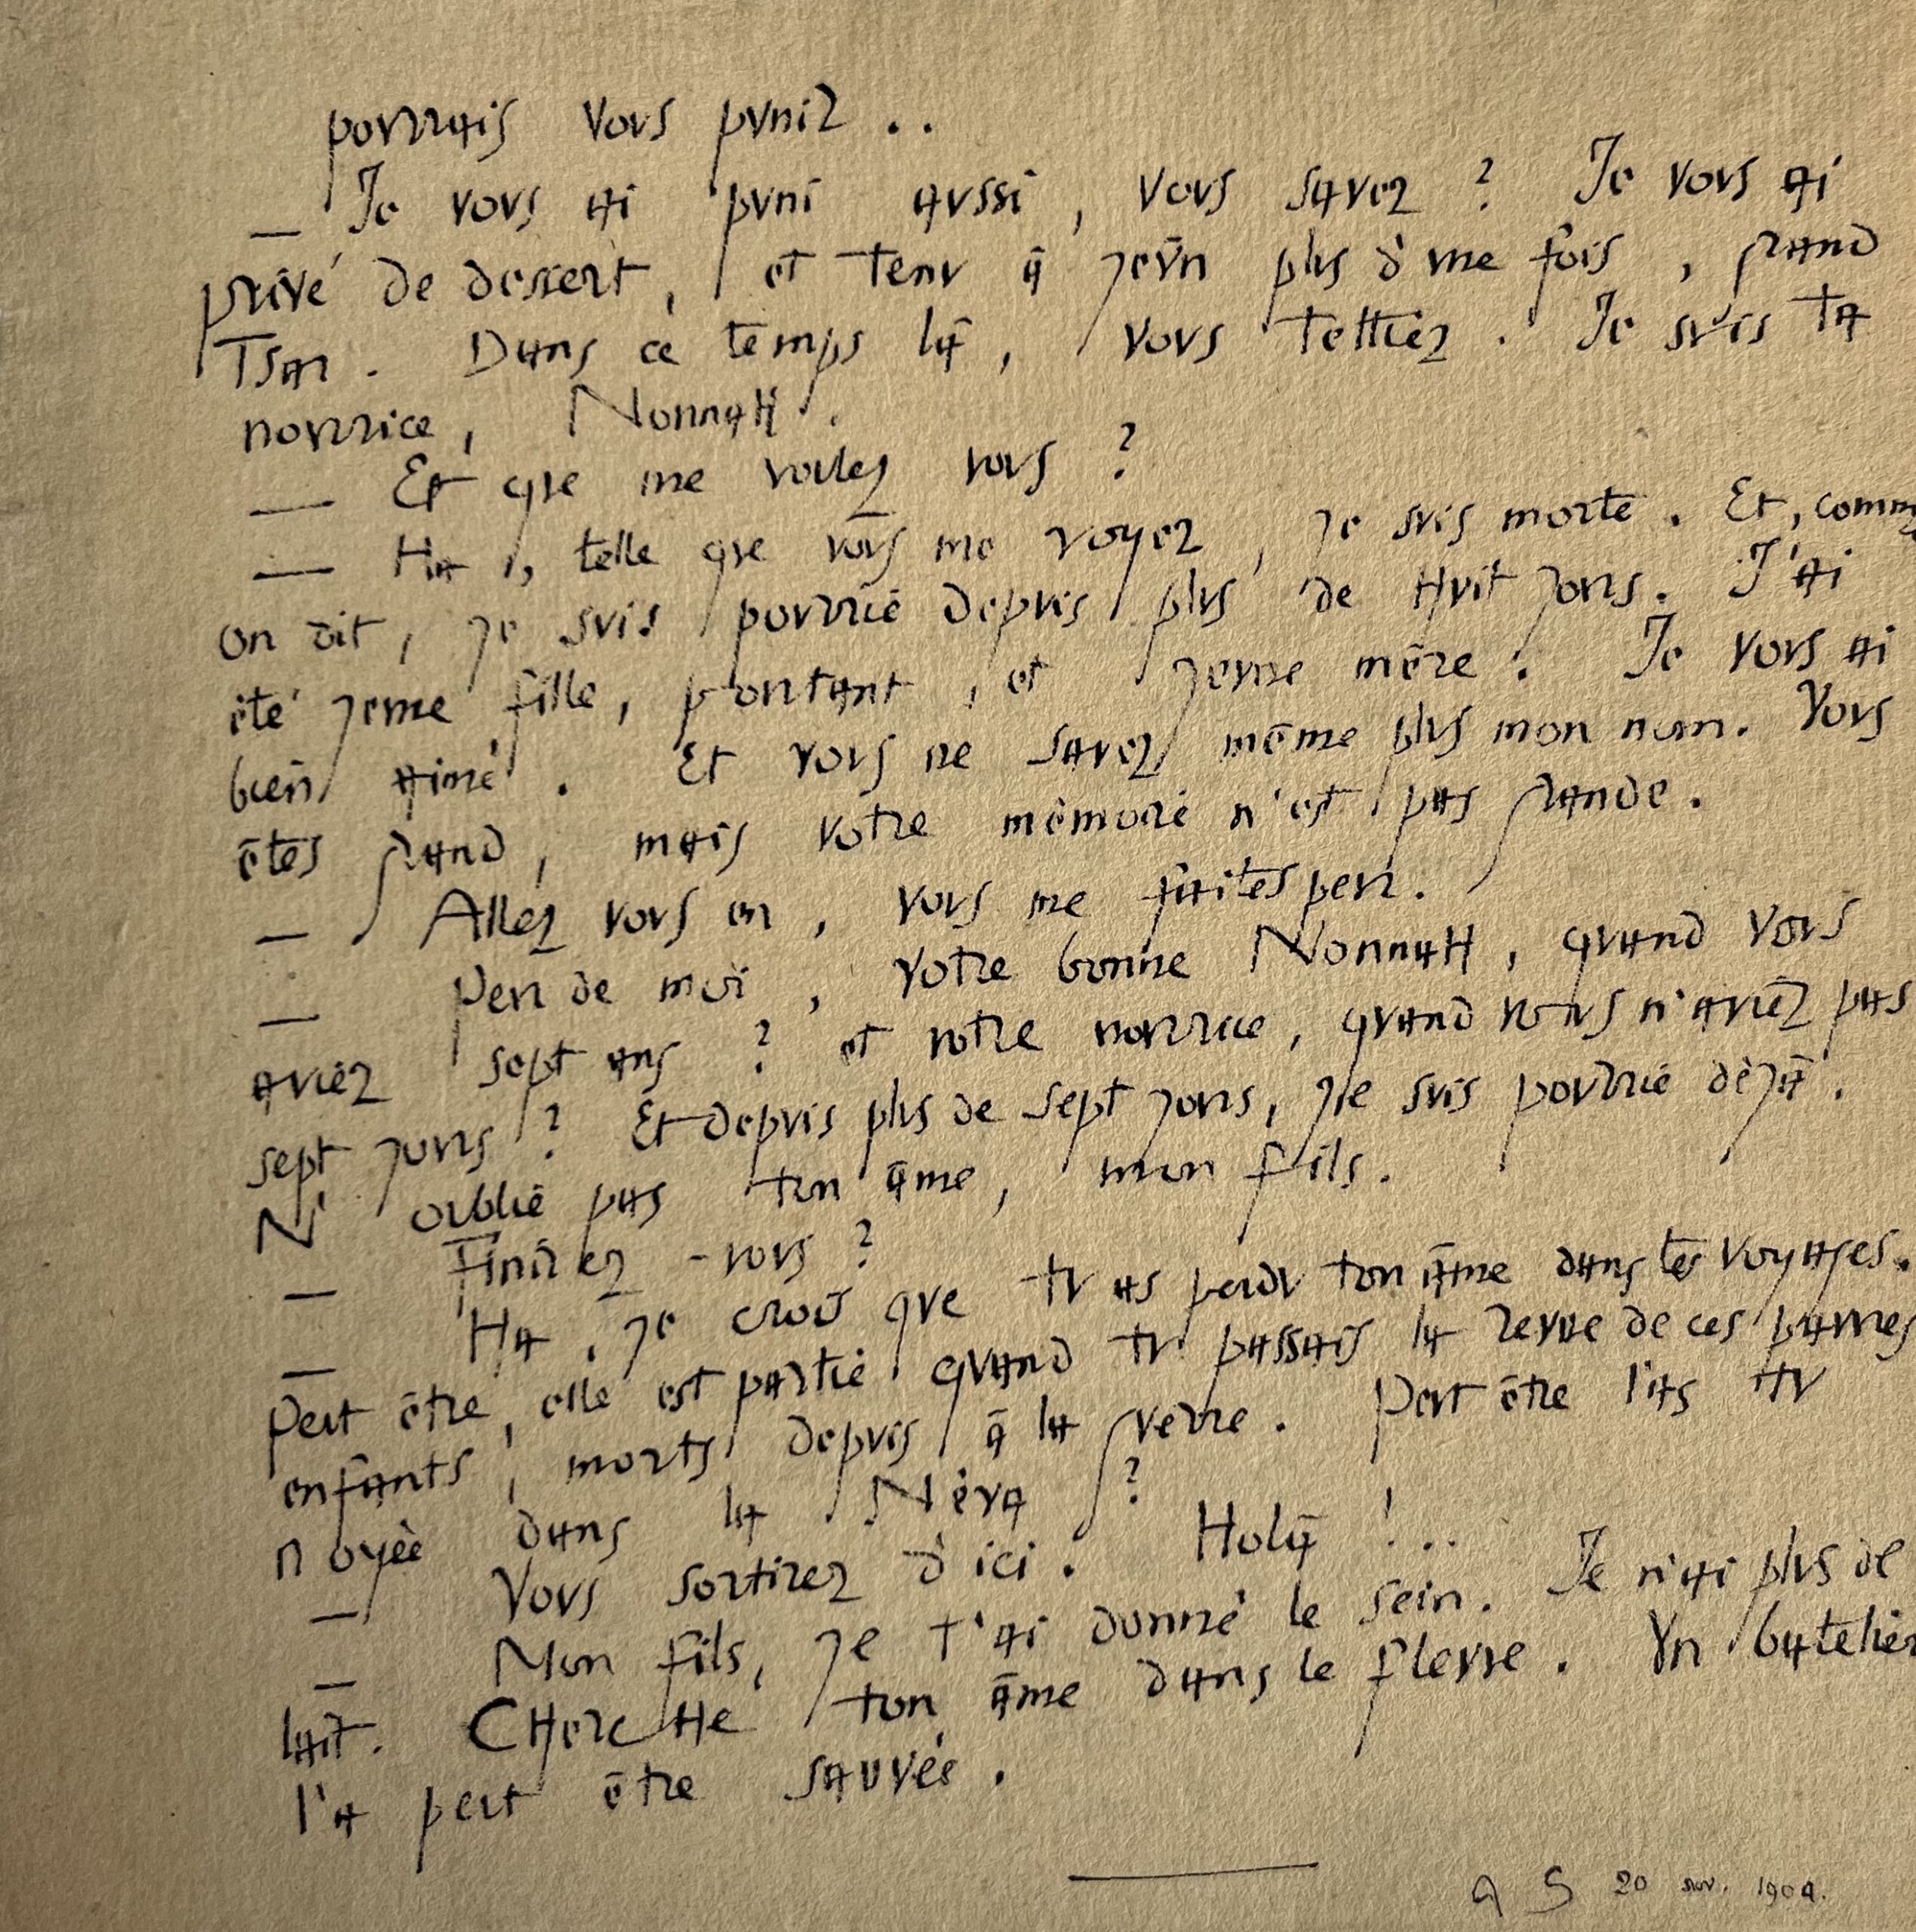 pourrais vous punir ..
— Je vous ai puni aussi, vous savez ? Je vous ai
privé de dessert, et tenu à jeûn plus d'une fois, grand
Tsar. Dans ce temps là, vous tettiez. Je suis ta
nourrice, Nonnah.
— Et que me voulez vous ?
— Ha, telle que vous me voyez, je suis morte. Et, comme
on dit, je suis pourrie depuis plus de huit jours. J'ai
été jeune fille, pourtant, et jeune mère. Je vous ai
bien aimé. Et vous ne savez même plus mon nom. Vous
êtes grand, mais votre mémoire n'est pas grande.
— Allez vous en, vous me faites peur.
— Peur de moi, votre bonne Nonnah, quand vous
aviez sept ans ? et votre nourrice, quand vous n'aviez pas
sept jours ? Et depuis plus de sept jours, je suis pourrie déjà.
N'oublie pas ton âme, mon fils.
— Finirez-vous ?
— Ha, je crois que tu as perdu ton âme dans tes voyages.
Peut être, elle est partie quand tu passais la revue de ces pauvres
enfants, morts depuis à la guerre. Peut être l'as tu
noyée dans la Néva ?
— Vous sortirez d'ici. Holà !...
— Mon fils, je t'ai donné le sein. Je n'ai plus de
lait. Cherche ton âme dans le fleuve. Un batelier
l'a peut être sauvée.
A S 20 nov. 1904.